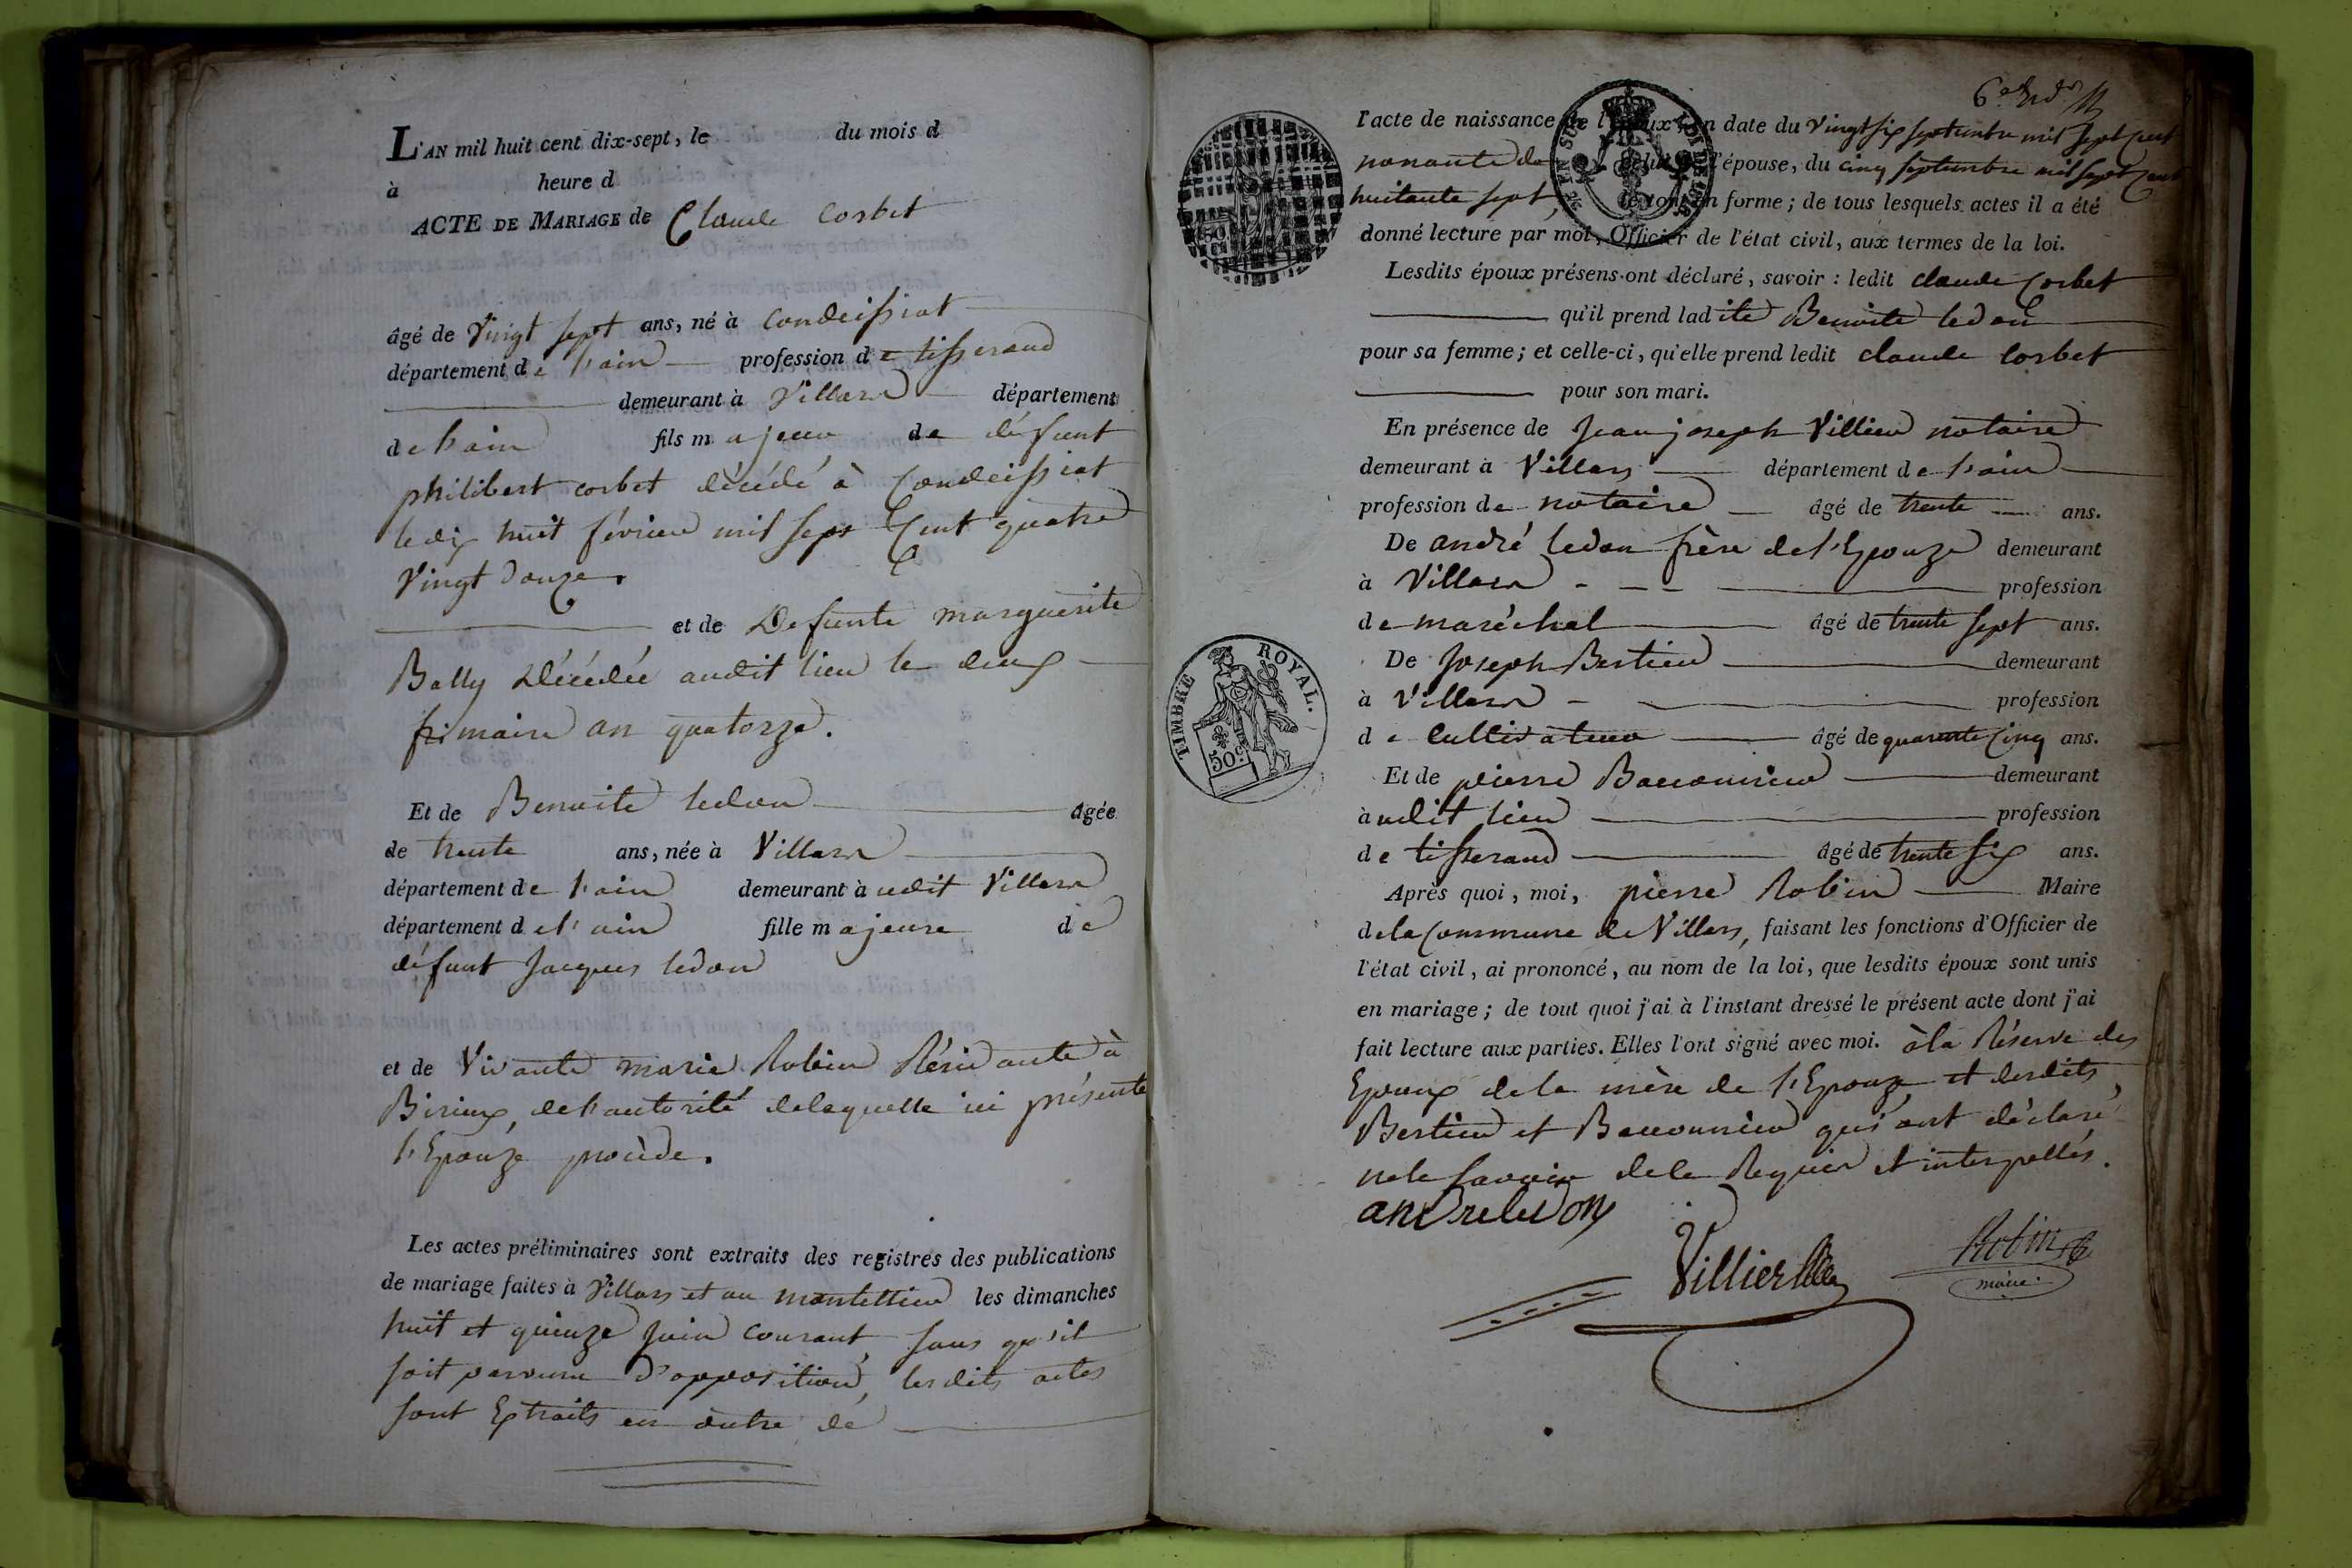 L'AN mil huit cent dix-sept, le du mois d
à heure d
ACTE DE MARIAGE de Claude Corbet
âgé de Vingt sept ans, né à Condeissiat
département de l'ain profession de tisserand
demeurant à Villars département
de l'ain fils majeur de défunt
philibert corbet décédé à Condeissiat
le dix huit février mil sept Cent quatre
Vingt douze.
et de Defunte marguerite
Bally Décédée audit lieu le deux
frimaire an quatorze.
Et de Benoite ledon âgée
de trente ans, née à Villars
département de l'ain demeurant à udit Villars
département de l'ain fille majeure de
défunt Jacques ledon
et de Vivante marie Robin Résidante à
Birieux, de l'autorité de laquelle ici présente
l'Epouze procède.
Les actes préliminaires sont extraits des registres des publications
de mariage faites à Villars et au montellier les dimanches
huit et quinze juin courant, sans qu'il
soit parvenu d'opposition, lesdits actes
sont Extraits en outre de
6e
l'acte de naissance de l'époux en date du Vingt six septembre mil sept cent
nonante de l'épouse, du cinq septembre mil sept Cent
huitante sept, le tout en forme ; de tous lesquels actes il a été
donné lecture par moi, Officier de l'état civil, aux termes de la loi.
Lesdits époux présens ont déclaré, savoir : ledit claude Corbet
qu'il prend ladite Benoite ledon
pour sa femme ; et celle-ci, qu'elle prend ledit claude Corbet
pour son mari.
En présence de Jean joseph Villier notaire
demeurant à Villars département de l'ain
profession de notaire âgé de trente ans.
De andré ledon frère de l'Epouze demeurant
à Villars profession
de maréchal âgé de trente sept ans.
De Joseph Bertier demeurant
à Villars profession
de Cultivateur âgé de quarente Cinq ans.
Et de pierre demeurant
à udit lieu profession
de tisserand âgé de trente six ans.
Après quoi, moi, pierre Robin Maire
de la Commune de Villars, faisant les fonctions d'Officier de
l'état civil, ai prononcé, au nom de la loi, que lesdits époux sont unis
en mariage ; de tout quoi j'ai à l'instant dressé le présent acte dont j'ai
fait lecture aux parties. Elles l'ont signé avec moi. à la Réserve des
Epoux de la mère de l'Epouze, et desdits
Bertier et qui ont déclaré
ne le savoir de ce Requis et interpellés.
andre ledon
Villier
Robin
maire.
TIMBRE ROYAL.
50c